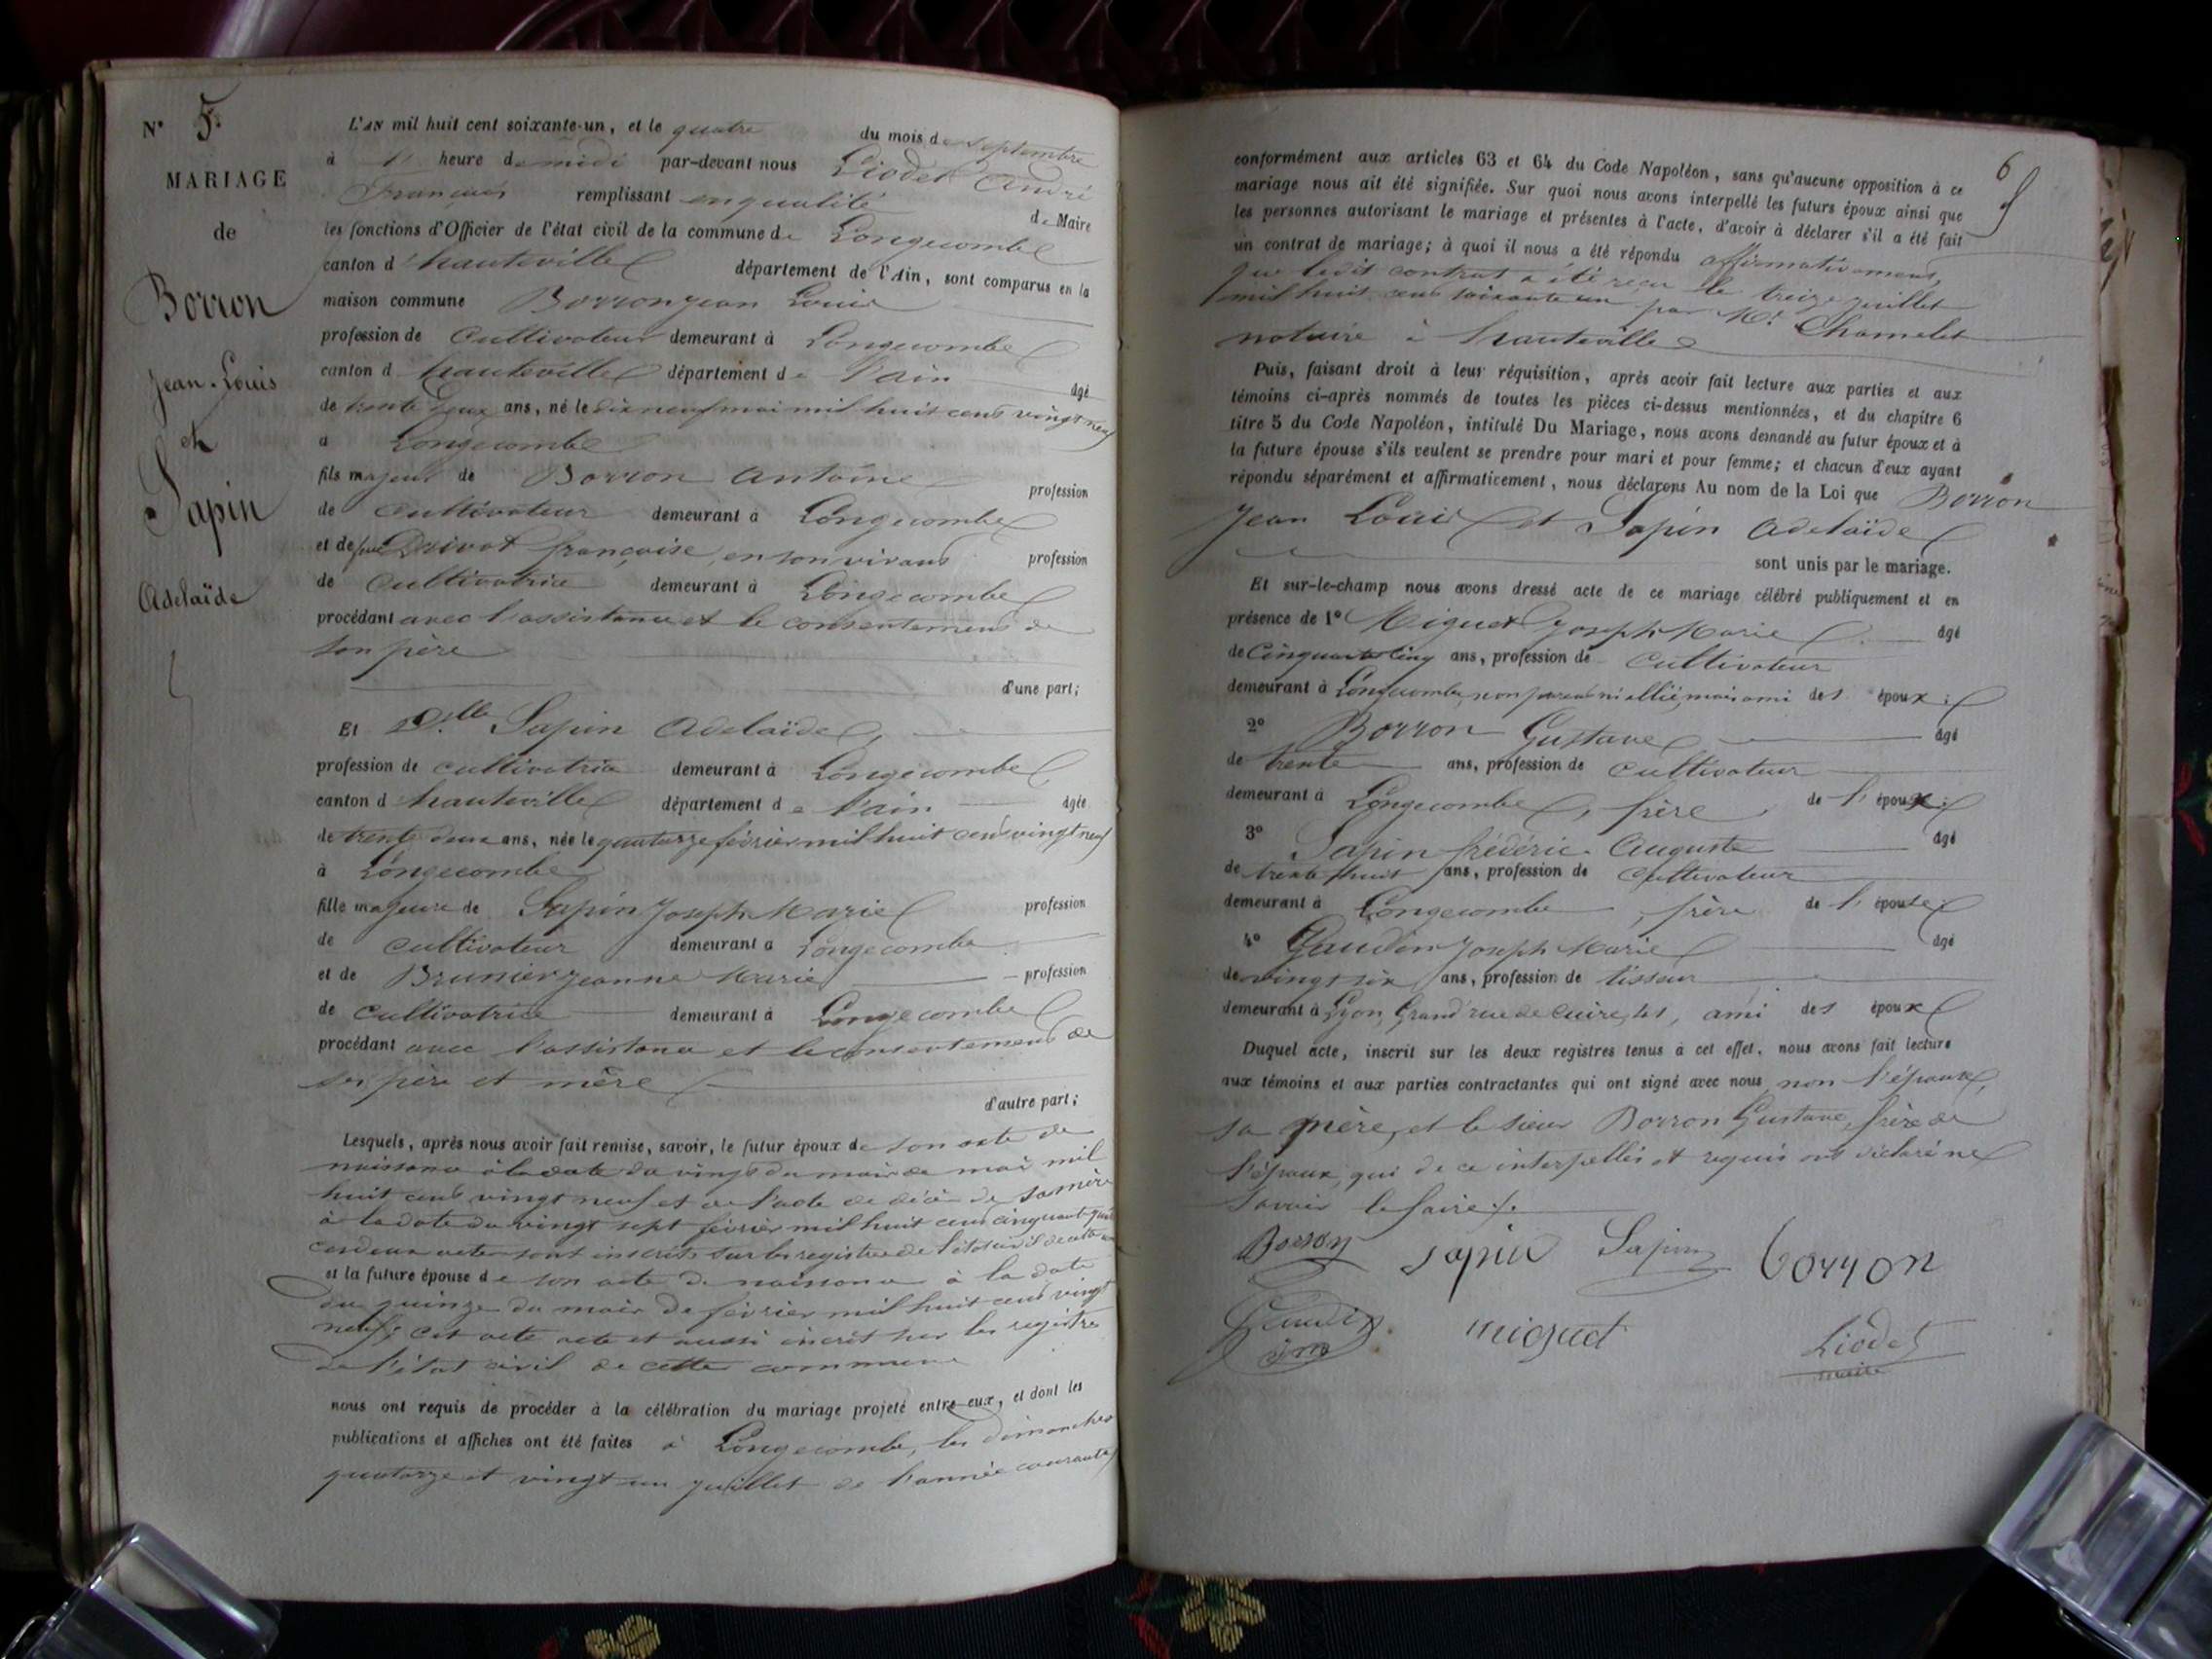 N° 5.
MARIAGE
de
Borron
Jean-Louis
et
Sapin
Adelaïde
L'AN mil huit cent soixante-un, et le quatre du mois de septembre
à heure de midi par-devant nous Liodet André
François remplissant en qualité de Maire
les fonctions d'Officier de l'état civil de la commune de Longecombe
canton d'hauteville département de l'Ain, sont comparus en la
maison commune Borron jean Louis
profession de Cultivateur demeurant à Longecombe
canton d hauteville département de l'ain âgé
de trente deux ans, né le dix neuf mai mil huit cent vingt neuf
à Longecombe
fils majeur de Borron Antoine profession
de Cultivateur demeurant à Longecombe
et de feue françoise, en son vivant profession
de Cultivatrice demeurant à Longecombe
procédant avec l'assistance et le consentement de
son père
d'une part;
Et Dlle Sapin Adelaïde,
profession de cultivatrice demeurant à Longecombe
canton d'hauteville département de l'ain âgée
de trente deux ans, née le quatorze février mil huit cent vingt neuf
à Longecombe
fille majeure de Sapin Joseph Marie profession
de cultivateur demeurant à Longecombe
et de Brunier jeanne Marie profession
de Cultivatrice demeurant à Longecombe
procédant avec l'assistance et le consentement de
ses père et mère
d'autre part;
Lesquels, après nous avoir fait remise, savoir, le futur époux de son acte de
naissance à la date du vingt du mois de mai mil
huit cent vingt neuf et de l'acte de décès de sa mère
à la date du vingt sept février mil huit cent cinquante
ces deux actes sont inscrits sur les registres de l'état civil de cette
et la future épouse de son acte de naissance à la date
du quinze du mois de février mil huit cent vingt
neuf; cet acte acte et aussi incrit sur les registres
de l'état civil de cette commune
nous ont requis de procéder à la célébration du mariage projeté entre eux, et dont les
publications et affiches ont été faites à Longecombe, les dimanches
quatorze et vingt un juillet de l'année courante
6
conformément aux articles 63 et 64 du Code Napoléon, sans qu'aucune opposition à ce
mariage nous ait été signifiée. Sur quoi nous avons interpellé les futurs époux ainsi que
les personnes autorisant le mariage et présentes à l'acte, d'avoir à déclarer s'il a été fait
un contrat de mariage; à quoi il nous a été répondu affirmativement,
que ledit contrat a été reçu le treize juillet
mil huit cent soixante un par Me. Chamelet
notaire à hauteville
Puis, faisant droit à leur réquisition, après avoir fait lecture aux parties et aux
témoins ci-après nommés de toutes les pièces ci-dessus mentionnées, et du chapitre 6
titre 5 du Code Napoléon, intitulé Du Mariage, nous avons demandé au futur époux et à
la future épouse s'ils veulent se prendre pour mari et pour femme; et chacun d'eux ayant
répondu séparément et affirmativement, nous déclarons Au nom de la Loi que Borron
Jean Louis et Sapin Adelaïde
sont unis par le mariage.
Et sur-le-champ nous avons dressé acte de ce mariage célébré publiquement et en
présence de 1° Miguet Joseph Marie âgé
de Cinquante cinq ans, profession de Cultivateur
demeurant à Longecombe, non parent ni allié, mais ami des époux;
2° Borron Gustave âgé
de trente ans, profession de cultivateur
demeurant à Longecombe, frère de l'époux;
3° Sapin frédéric Auguste âgé
de trente huit ans, profession de Cultivateur
demeurant à Longecombe, frère de l'épouse;
4° Gaudin Joseph Marie âgé
de vingt six ans, profession de tisseur
demeurant à Lyon, Grand'rue de Cuire, ami des époux
Duquel acte, inscrit sur les deux registres tenus à cet effet, nous avons fait lecture
aux témoins et aux parties contractantes qui ont signé avec nous non l'épouse,
sa mère, et le sieur Borron Gustave, frère de
l'époux, qui de ce interpellés et requis ont déclaré ne
savoir le faire.
Borron Sapin Sapin borron
Gaudin
miguet
Liodet
maire